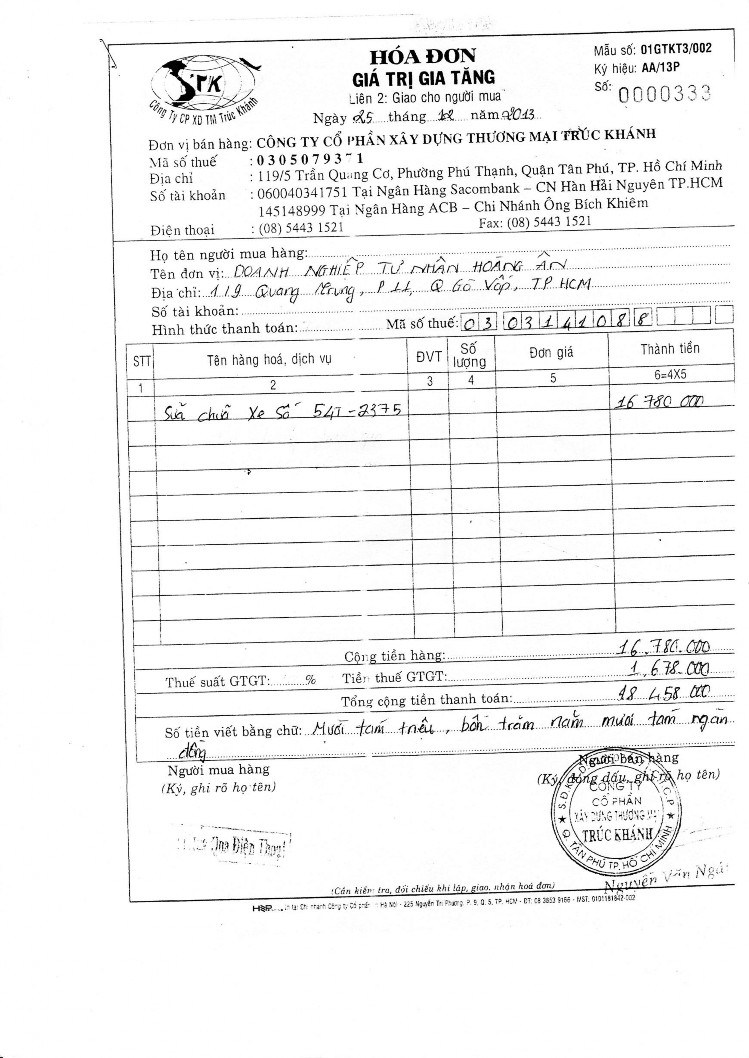 STK
Công Ty CP XD TM Trúc Khánh
HÓA ĐƠN
GIÁ TRỊ GIA TĂNG
Liên 2: Giao cho người mua
Ngày 25 tháng 12 năm 2013
Mẫu số: 01GTKT3/002
Ký hiệu: AA/13P
Số: 0000333
Đơn vị bán hàng: CÔNG TY CỔ PHẦN XÂY DỰNG THƯƠNG MẠI TRÚC KHÁNH
Mã số thuế : 0305079371
Địa chỉ : 119/5 Trần Quang Cơ, Phường Phú Thạnh, Quận Tân Phú, TP. Hồ Chí Minh
Số tài khoản : 060040341751 Tại Ngân Hàng Sacombank – CN Hàn Hải Nguyên TP.HCM
145148999 Tại Ngân Hàng ACB – Chi Nhánh Ông Bích Khiêm
Điện thoại : (08) 5443 1521 Fax: (08) 5443 1521
Họ tên người mua hàng:
Tên đơn vị: DOANH NGHIỆP TƯ NHÂN HOÀNG ÂN
Địa chỉ: 119 Quang Trung, P 11, Q Gò Vấp, TP HCM
Số tài khoản:
Hình thức thanh toán: Mã số thuế: 0303141088
STT Tên hàng hoá, dịch vụ ĐVT Số lượng Đơn giá Thành tiền
1 2 3 4 5 6=4X5
Sửa chữa Xe Số 54T-2375 16 780 000
Cộng tiền hàng: 16.780.000
Thuế suất GTGT: % Tiền thuế GTGT: 1.678.000
Tổng cộng tiền thanh toán: 18 458 000
Số tiền viết bằng chữ: Mười tám triệu, bốn trăm năm mươi tám ngàn
đồng
Người mua hàng
(Ký, ghi rõ họ tên)
Người bán hàng
(Ký, đóng dấu, ghi rõ họ tên)
CÔNG TY
CỔ PHẦN
XÂY DỰNG THƯƠNG MẠI
TRÚC KHÁNH
Q. TÂN PHÚ TP. HỒ CHÍ MINH
Qua Điện Thoại
Nguyễn Văn
(Cần kiểm tra, đối chiếu khi lập, giao, nhận hoá đơn)
in tại Chi nhánh Công ty Cổ phần Hà Nội - 225 Nguyễn Tri Phương, P. 9, Q. 5, TP. HCM - ĐT: 08 3853 9166 - MST: 0101181842-002